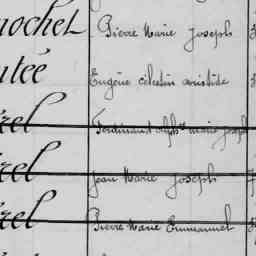 nochet Pierre Marie Joseph
utée Eugène célestin aristide
rel Ferdinand Alphse marie joseph
rel Jean Marie Joseph
rel Pierre Marie Emmanuel